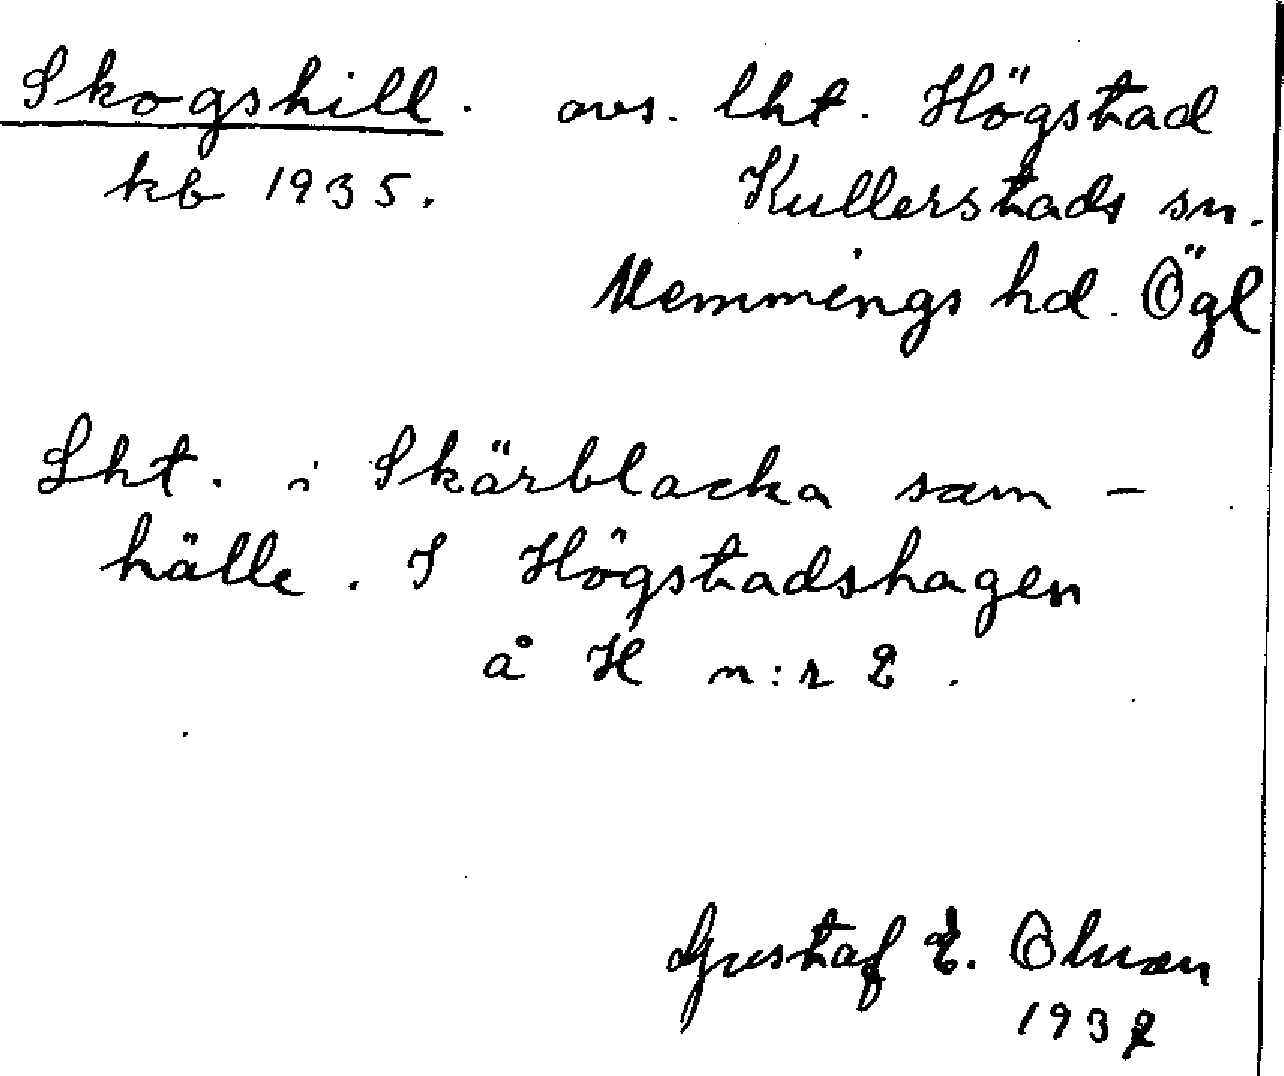 Skogshill. avs. lht. Högstad
kb 1935. Kullerstads sn.
Memmings hd. Ögl
Lht. i Skärblacka sam-
hälle. I Högstadshagen
å H n:r 2.
Gustaf E. Olsson
193